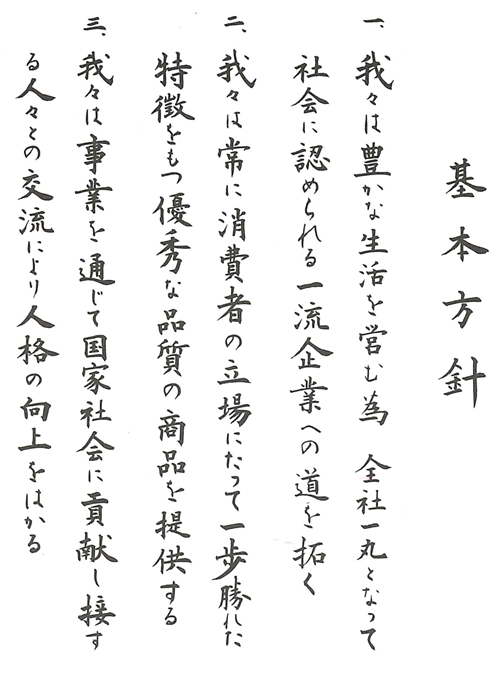 基本方針
一、我々は豊かな生活を営む為 全社一丸となって
社会に認められる一流企業への道を拓く
二、我々は常に消費者の立場にたって一歩勝れた
特徴をもつ優秀な品質の商品を提供する
三、我々は事業を通じて国家社会に貢献し接す
る人々との交流により人格の向上をはかる